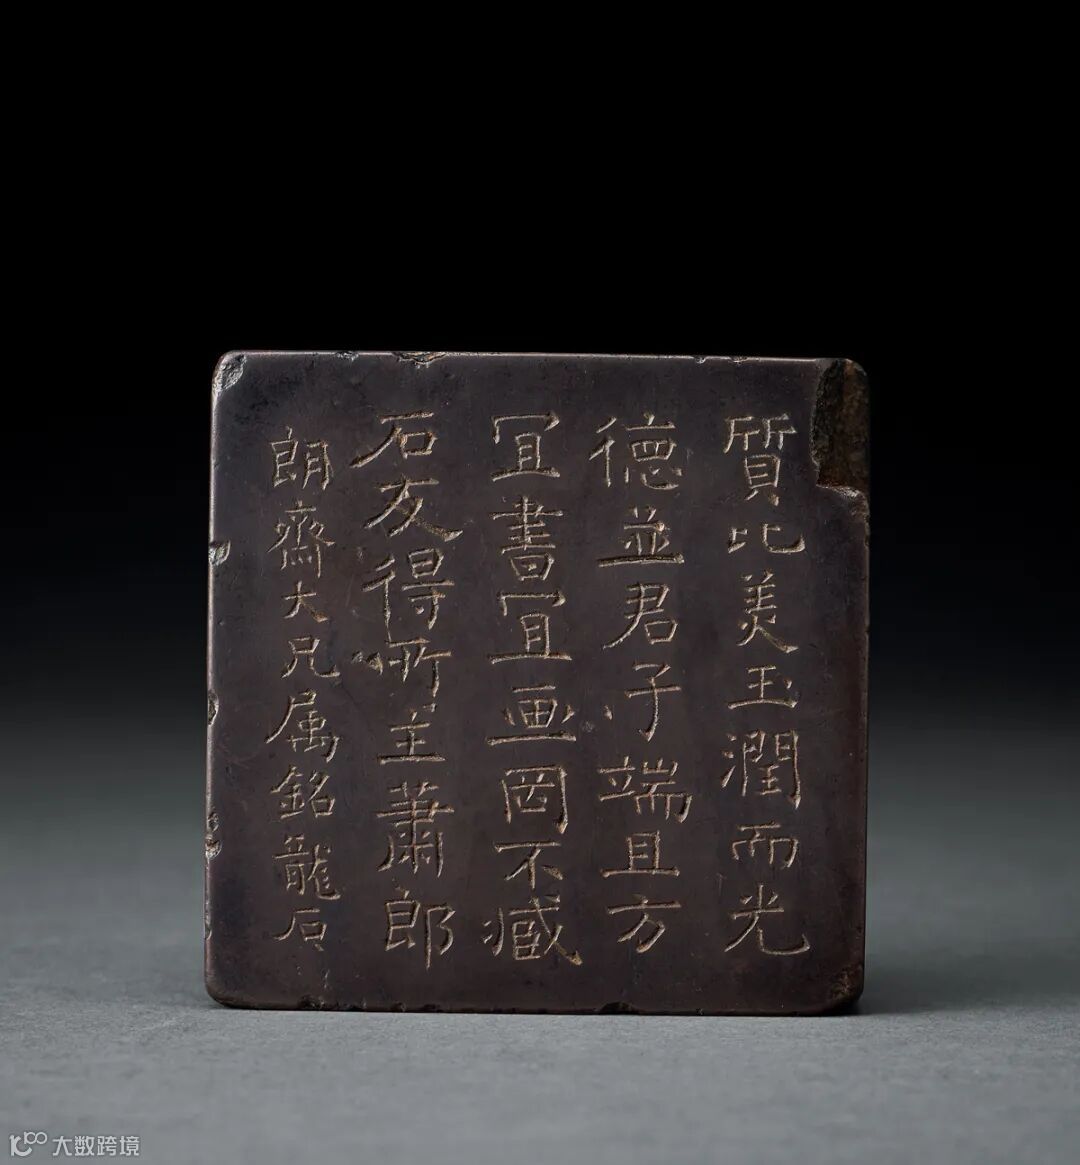 質比美玉潤而光
德並君子端且方
冝書冝画罔不臧
石友得所主蕭郎
朗齋大兄属銘龍石
大数跨境